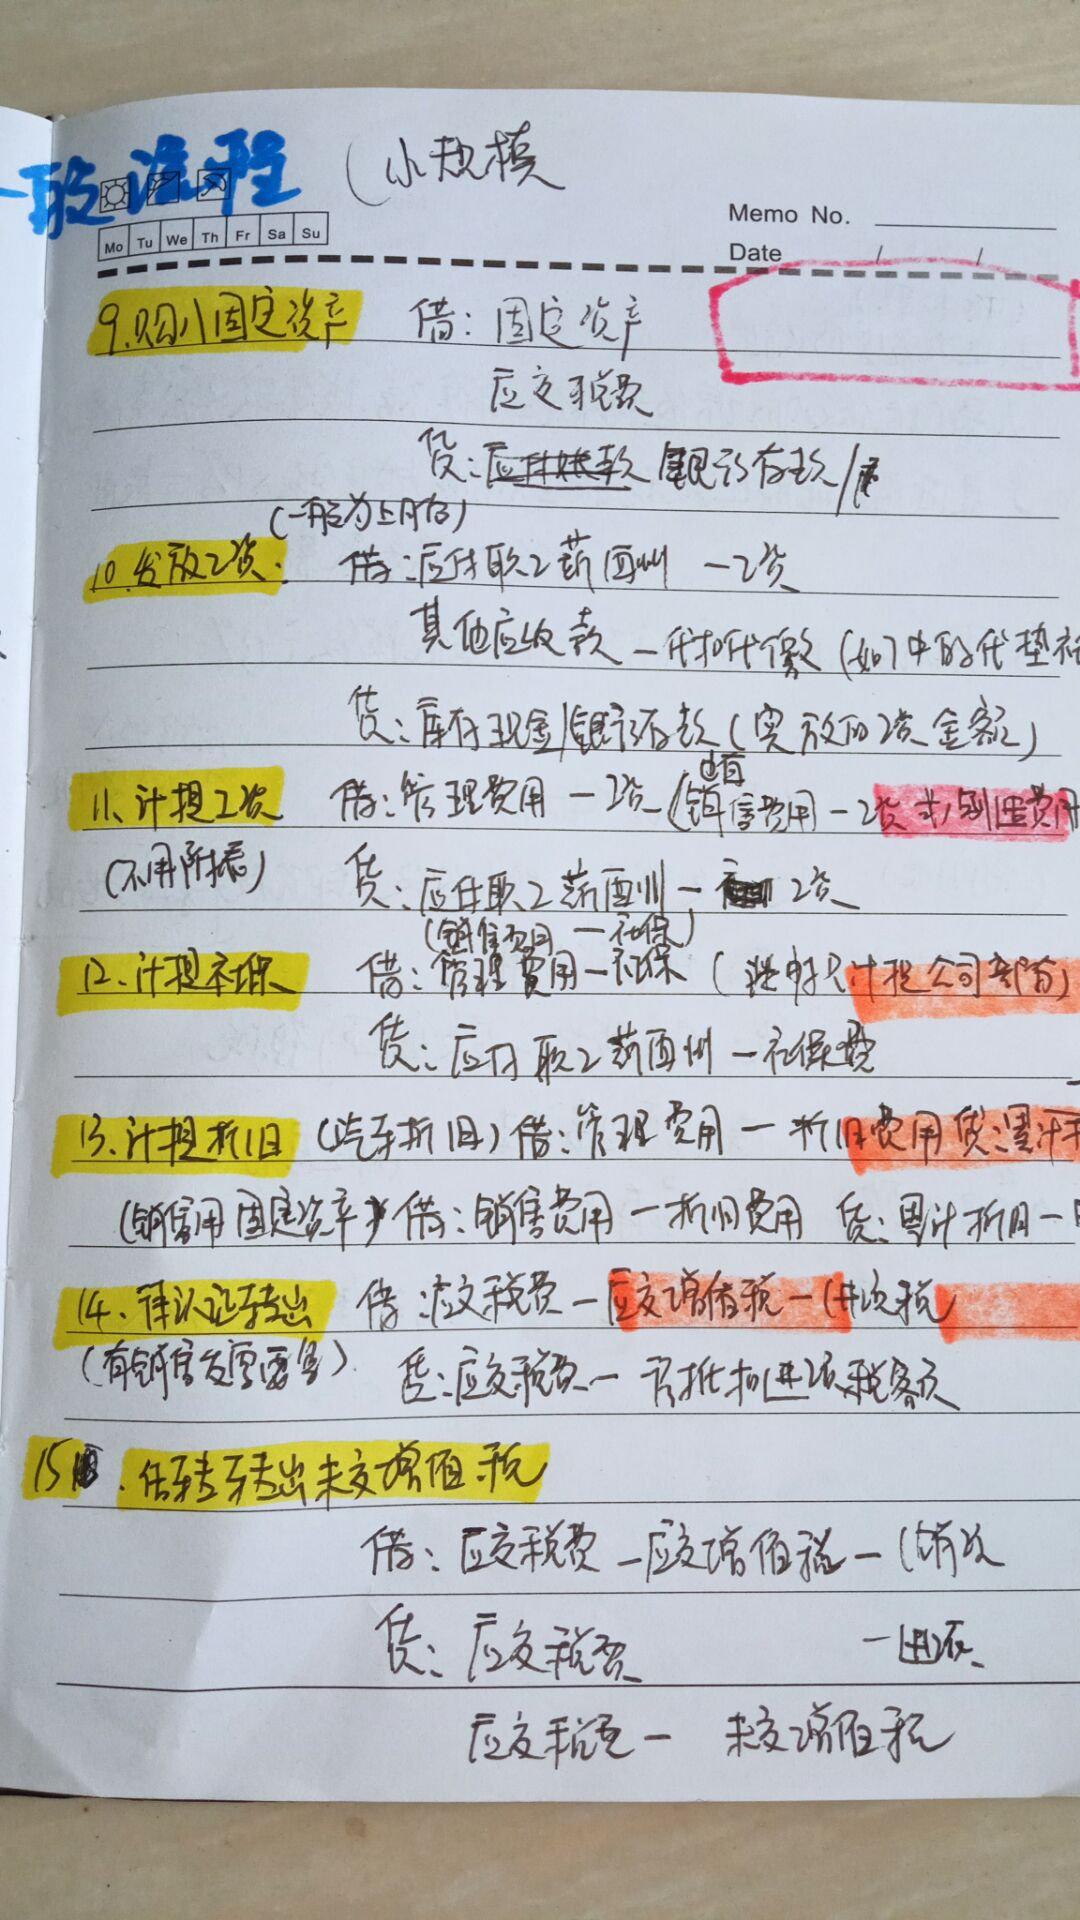 一般流程 (小规模
Memo No.
Mo Tu We Th Fr Sa Su
Date / /
9.购入固定资产 借：固定资产
应交税费
贷：应付账款 银行存款/
(一般为上月份)
10.发放工资. 借：应付职工薪酬 — 工资
其他应收款 — 代扣代缴 (如中的代垫社
贷：库存现金/银行存款 (实放的工资金额)
11、计提工资 借：管理费用 — 工资 (销售费用 — 工资 或 制造费用
(不用附表) 贷：应付职工薪酬 — 工资
(销售费用 — 社保)
12、计提社保 借：管理费用 — 社保 (只计提公司部分)
贷：应付职工薪酬 — 社保费
13、计提折旧 (汽车折旧) 借：管理费用 — 折旧费用 贷：累计
(销售用固定资产) 借：销售费用 — 折旧费用 贷：累计折旧 —
14、待认证转出 借：应交税费 — 应交增值税 — (进项税
(有销售发票要写) 贷：应交税费 — 待抵扣进项税额
15、结转转出未交增值税
借：应交税费 — 应交增值税 — (销项
贷：应交税费 — 进项
应交税费 — 未交增值税